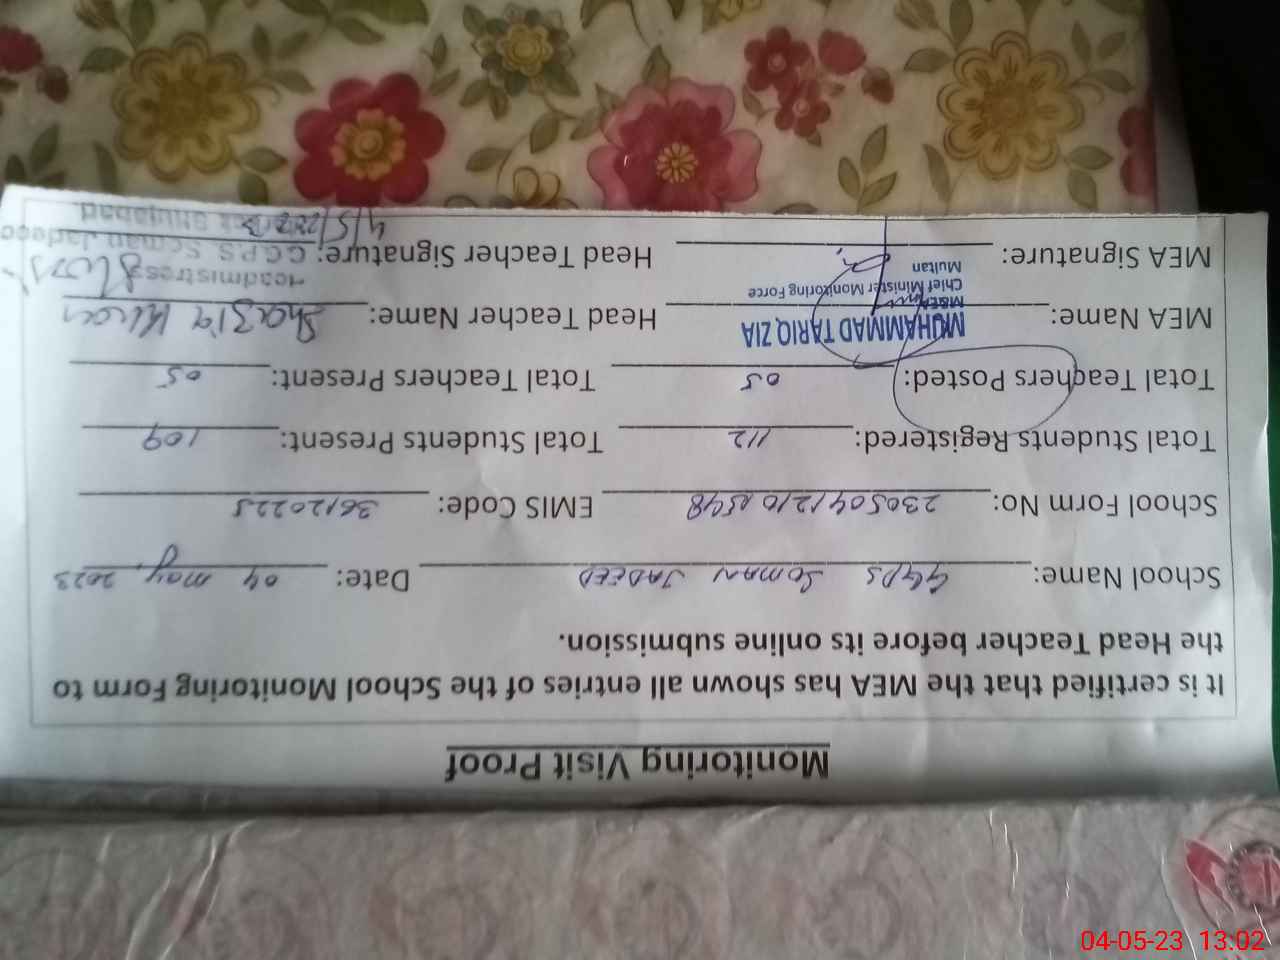 Monitoring Visit Proof
It is certified that the MEA has shown all entries of the School Monitoring Form to
the Head Teacher before its online submission.
School Name: GGPS SOMAN JADEED Date: 04 may, 2023
School Form No: EMIS Code: 36120225
Total Students Registered: 112 Total Students Present: 109
Total Teachers Posted: 05 Total Teachers Present: 05
MEA Name: MUHAMMAD TARIQ ZIA Head Teacher Name: Shazia Kiran
M&EA
Chief Minister Monitoring Force
Multan
MEA Signature: Head Teacher Signature:
Headmistress
G.G.P.S. Soman Jadeed
Shujabad
04-05-23 13:02